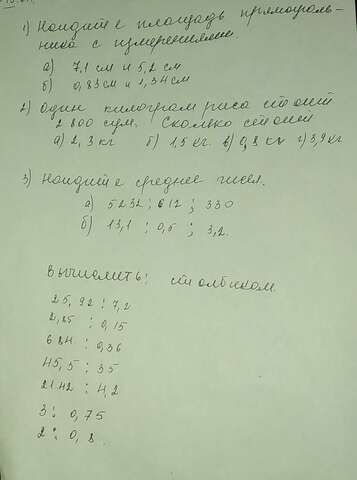 1) Найдите площадь прямоуголь-
ника с измерениями
а) 7,1 см и 5,2 см
б) 0,83 см и 1,34 см
2) Один килограм риса стоит
2 800 сум. Сколько стоит
а) 2,3 кг б) 1,5 кг. в) 0,8 кг г) 3,9 кг
3) Найдите среднее чисел.
а) 5232 ; 612 ; 330
б) 13,1 ; 0,5 ; 3,2.
Вычислить: столбиком
25,92 : 7,2
2,25 : 0,15
684 : 0,36
45,5 : 35
2142 : 4,2
3 : 0,75
2 : 0,8.